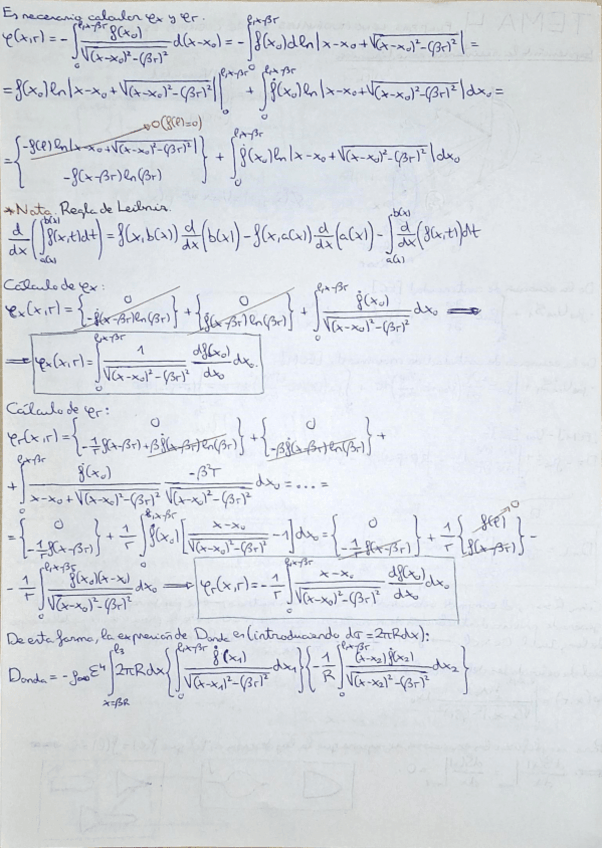 Es necesario calcular φx y φr.
φ(x,r) = -∫₀^{ℓ,x-βr} f(x₀)/√((x-x₀)²-(βr)²) d(x-x₀) = -∫₀^{ℓ,x-βr} f(x₀) d ln|x-x₀+√((x-x₀)²-(βr)²)| =
= f(x₀) ln|x-x₀+√((x-x₀)²-(βr)²)| |_{ℓ,x-βr}^{0} + ∫₀^{ℓ,x-βr} ḟ(x₀) ln|x-x₀+√((x-x₀)²-(βr)²)| dx₀ =
= { -f(ℓ) ln|x-x₀+√((x-x₀)²-(βr)²)| → 0 (f(ℓ)=0) ; -f(x-βr) ln(βr) } + ∫₀^{ℓ,x-βr} ḟ(x₀) ln|x-x₀+√((x-x₀)²-(βr)²)| dx₀
*Nota. Regla de Leibniz.
d/dx (∫_{a(x)}^{b(x)} f(x,t)dt) = f(x,b(x)) d/dx (b(x)) - f(x,a(x)) d/dx (a(x)) - ∫_{a(x)}^{b(x)} d/dx (f(x,t)dt
Cálculo de φx:
φx(x,r) = { 0 ; -ḟ(x-βr)ln(βr) } + { 0 ; ḟ(x-βr)ln(βr) } + ∫₀^{ℓ,x-βr} ḟ(x₀)/√((x-x₀)²-(βr)²) dx₀ ⟹
⟹ φx(x,r) = ∫₀^{ℓ,x-βr} 1/√((x-x₀)²-(βr)²) df(x₀)/dx₀ dx₀.
Cálculo de φr:
φr(x,r) = { 0 ; -1/r f(x-βr)+βḟ(x-βr)ln(βr) } + { 0 ; -βḟ(x-βr)ln(βr) } +
+ ∫₀^{ℓ,x-βr} ḟ(x₀)/(x-x₀+√((x-x₀)²-(βr)²)) -β²r/√((x-x₀)²-(βr)²) dx₀ = ... =
= { 0 ; -1/r f(x-βr) } + 1/r ∫₀^{ℓ,x-βr} ḟ(x₀) [ (x-x₀)/√((x-x₀)²-(βr)²) - 1 ] dx₀ = { 0 ; -1/r f(x-βr) } + 1/r { f(ℓ) → 0 ; f(x-βr) } -
- 1/r ∫₀^{ℓ,x-βr} ḟ(x₀)(x-x₀)/√((x-x₀)²-(βr)²) dx₀ ⟹ φr(x,r) = -1/r ∫₀^{ℓ,x-βr} (x-x₀)/√((x-x₀)²-(βr)²) df(x₀)/dx₀ dx₀
De esta forma, la expresión de Donda es (introduciendo dσ = 2πRdx):
Donda = -ρ∞ ε⁴ ∫_{x=βR}^{ℓ₃} 2πRdx { ∫₀^{ℓ,x-βr} ḟ(x₁)/√((x-x₁)²-(βr)²) dx₁ } { -1/R ∫₀^{ℓ,x-βr} (x-x₂)ḟ(x₂)/√((x-x₂)²-(βr)²) dx₂ }